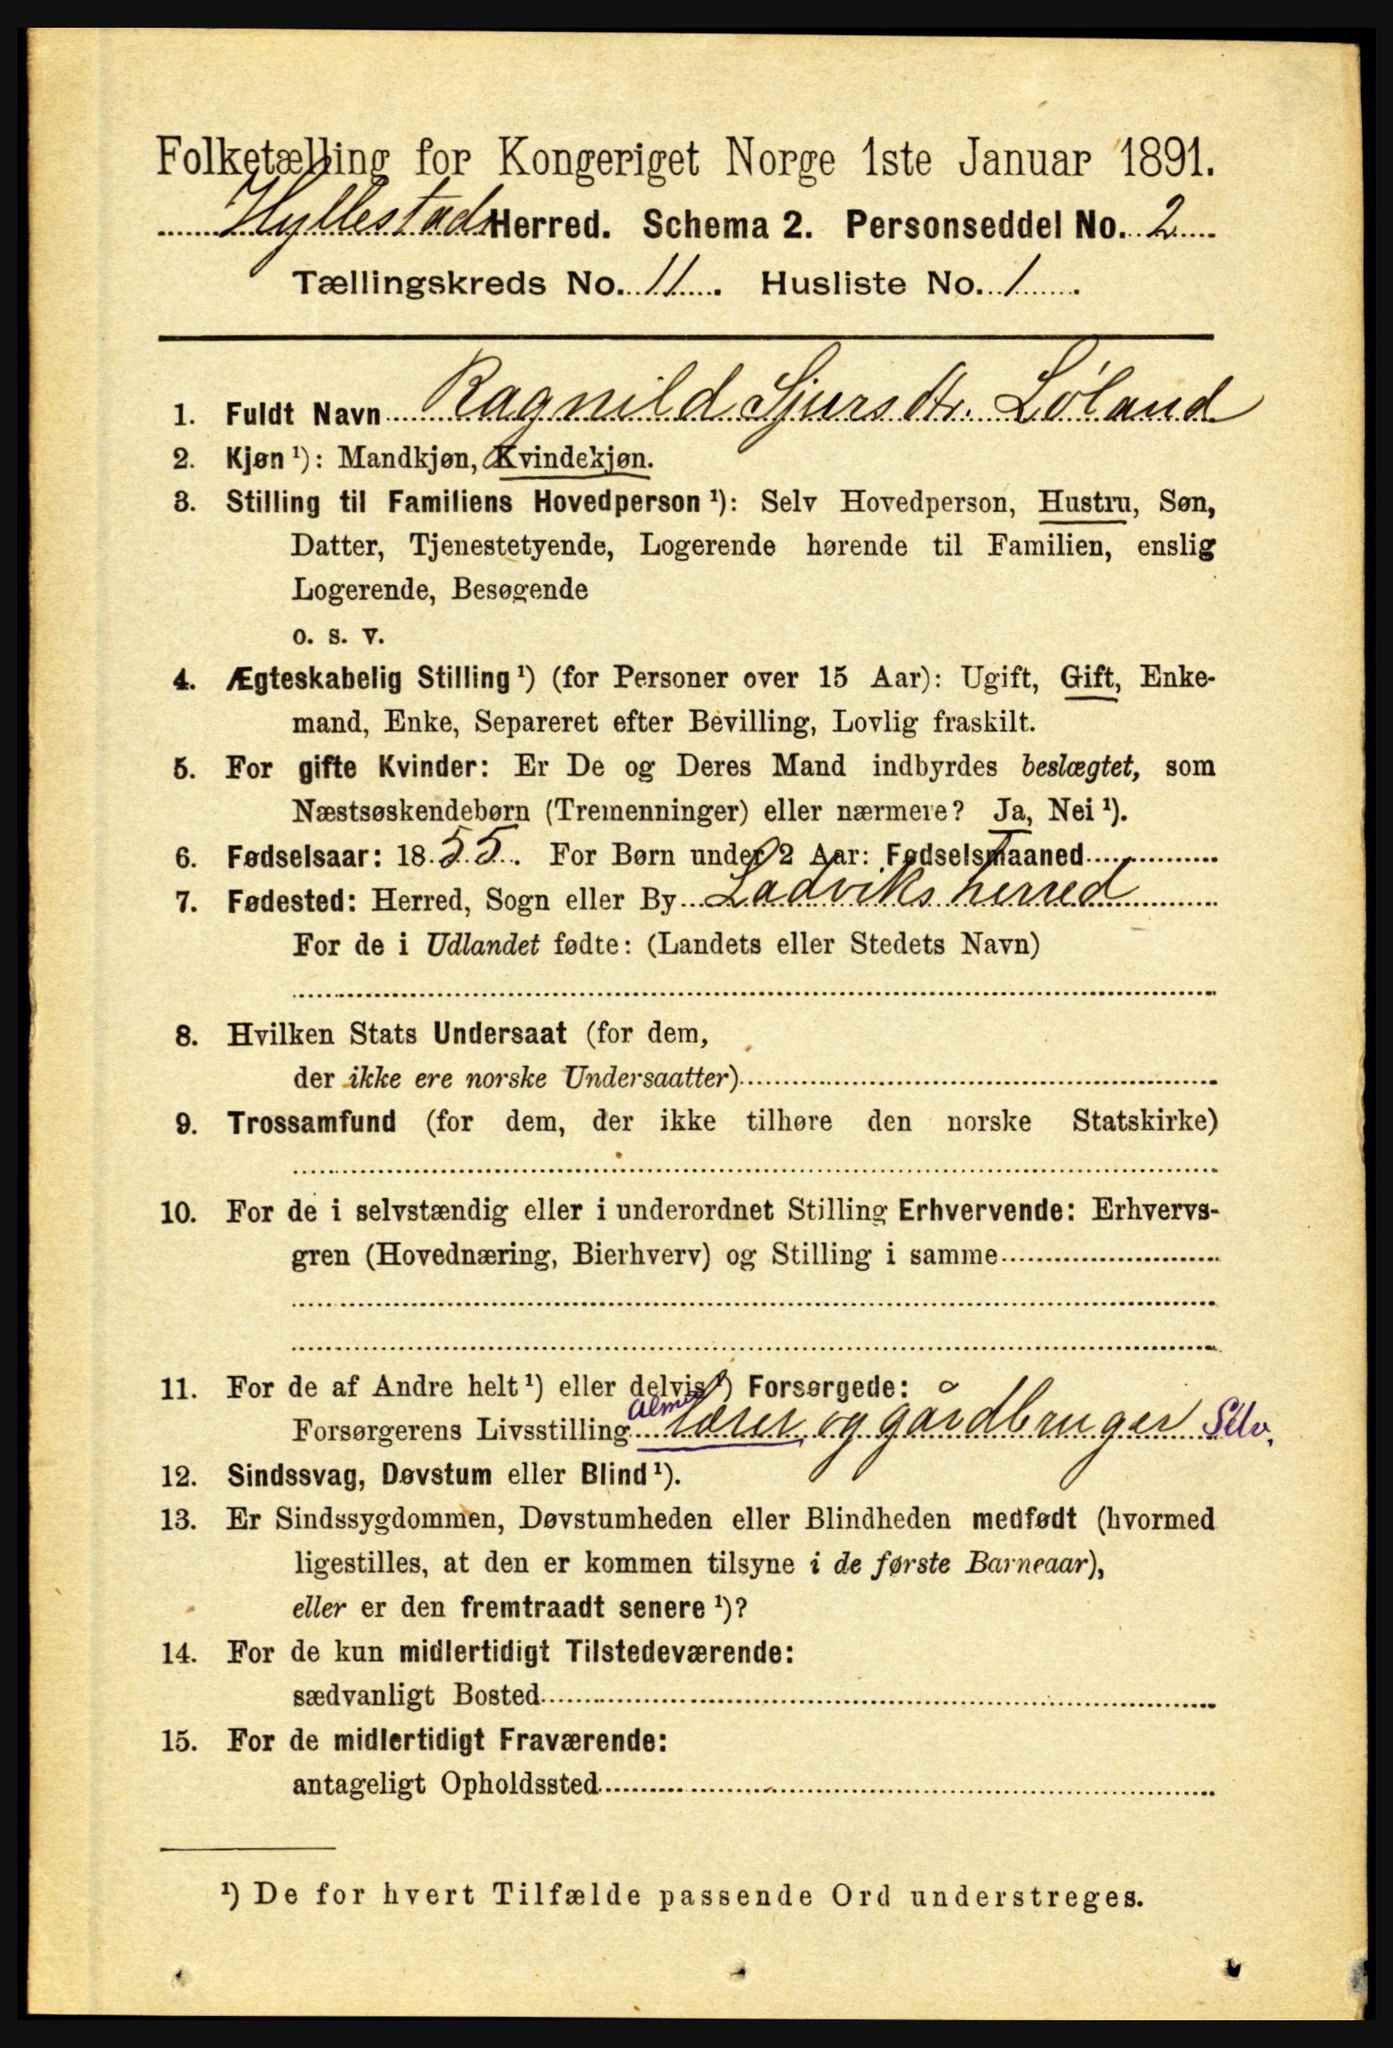 Folketælling for Kongeriget Norge 1ste Januar 1891.
Hyllestads Herred. Schema 2. Personseddel No. 2
Tællingskreds No. 11. Husliste No. 1.
1. Fuldt Navn Ragnild Sjursdtr. Løland
2. Kjøn ¹): Mandkjøn, Kvindekjøn.
3. Stilling til Familiens Hovedperson ¹): Selv Hovedperson, Hustru, Søn,
Datter, Tjenestetyende, Logerende hørende til Familien, enslig
Logerende, Besøgende
o. s. v.
4. Ægteskabelig Stilling ¹) (for Personer over 15 Aar): Ugift, Gift, Enke-
mand, Enke, Separeret efter Bevilling, Lovlig fraskilt.
5. For gifte Kvinder: Er De og Deres Mand indbyrdes beslægtet, som
Næstsøskendebørn (Tremenninger) eller nærmere? Ja, Nei ¹).
6. Fødselsaar: 1855. For Børn under 2 Aar: Fødselsmaaned
7. Fødested: Herred, Sogn eller By Ladviks herred
For de i Udlandet fødte: (Landets eller Stedets Navn)
8. Hvilken Stats Undersaat (for dem,
der ikke ere norske Undersaatter)
9. Trossamfund (for dem, der ikke tilhøre den norske Statskirke)
10. For de i selvstændig eller i underordnet Stilling Erhvervende: Erhvervs-
gren (Hovednæring, Bierhverv) og Stilling i samme
11. For de af Andre helt ¹) eller delvis ¹) Forsørgede:
Forsørgerens Livsstilling Alms lærer og gårdbruger Selv.
12. Sindssvag, Døvstum eller Blind ¹).
13. Er Sindssygdommen, Døvstumheden eller Blindheden medfødt (hvormed
ligestilles, at den er kommen tilsyne i de første Barneaar),
eller er den fremtraadt senere ¹)?
14. For de kun midlertidigt Tilstedeværende:
sædvanligt Bosted
15. For de midlertidigt Fraværende:
antageligt Opholdssted
¹) De for hvert Tilfælde passende Ord understreges.